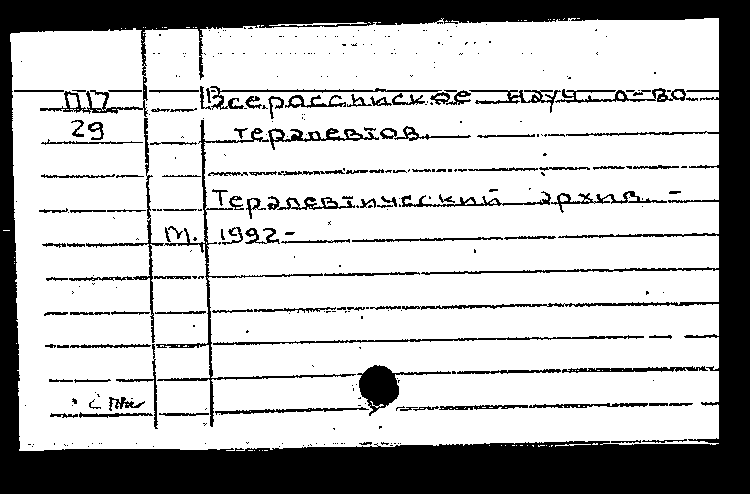 П17 Всероссийское науч. о-во
29 терапевтов.
Терапевтический архив. -
М., 1992-